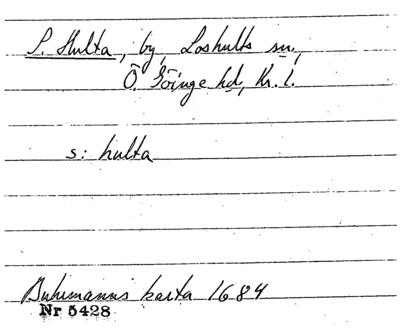 S. Hulta, by, Loshults sn,
Ö. Göinge hd, Kr. l.
s: hulta
Buhrmanns karta 1684
Nr 5428